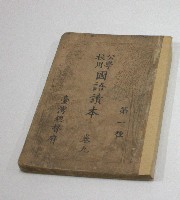 第一種
公學校用
國語讀本 卷
臺灣總督府